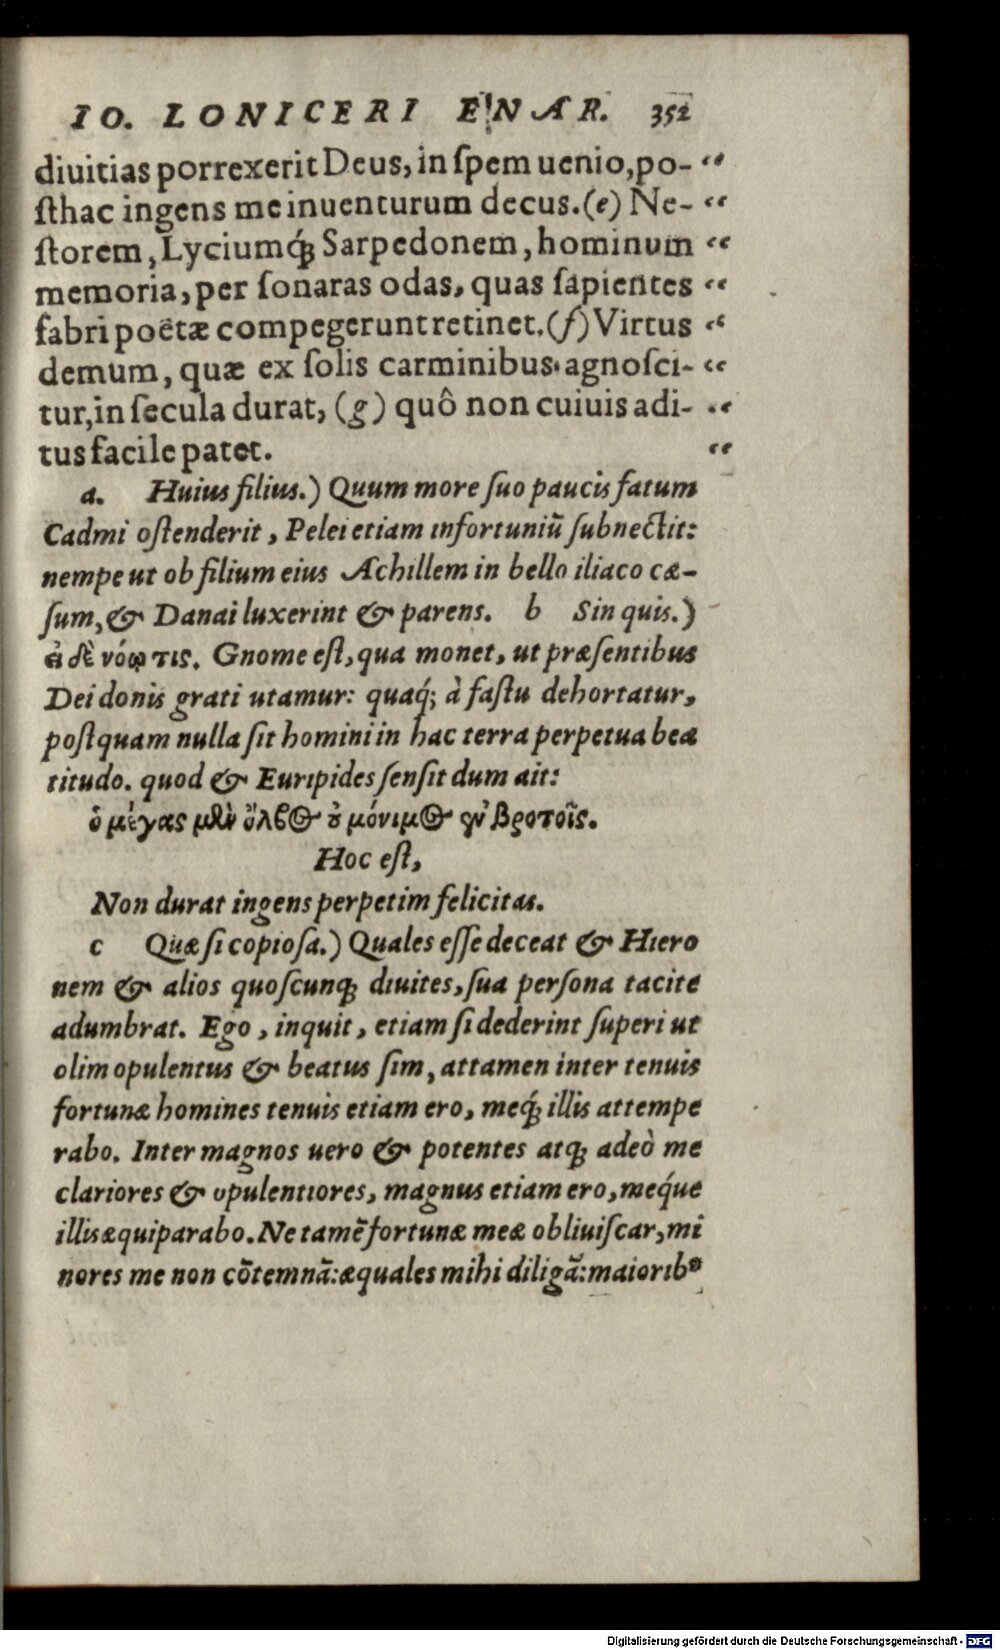 IO. LONICERI ENAR. 352
diuitias porrexerit Deus, in ſpem uenio, po- “
ſthac ingens me inuenturum decus. (e) Ne- “
ſtorem, Lyciumq́ꝫ Sarpedonem, hominum “
memoria, per ſonaras odas, quas ſapientes “
fabri poëtæ compegerunt retinet. (f) Virtus “
demum, quæ ex ſolis carminibus agnoſci- “
tur, in ſecula durat, (g) quô non cuiuis adi- “
tus facile patet. “
a. Huius filius.) Quum more ſuo paucis fatum
Cadmi oſtenderit, Pelei etiam infortuniũ ſubnectit:
nempe ut ob filium eius Achillem in bello iliaco cæ-
ſum, & Danai luxerint & parens. b Sin quis.)
εἰ δὲ νόῳ τις. Gnome eſt, qua monet, ut præſentibus
Dei donis grati utamur: quaq́; à faſtu dehortatur,
poſtquam nulla ſit homini in hac terra perpetua bea
titudo. quod & Euripides ſenſit dum ait:
ὁ μέγας μὲν ὄλβος οὐ μόνιμος ἐν βροτοῖς.
Hoc eſt,
Non durat ingens perpetim felicitas.
c Quæ ſi copioſa.) Quales eſſe deceat & Hiero
nem & alios quoſcunqꝫ diuites, ſua perſona tacite
adumbrat. Ego, inquit, etiam ſi dederint ſuperi ut
olim opulentus & beatus ſim, attamen inter tenuis
fortunæ homines tenuis etiam ero, meq́ꝫ illis attempe
rabo. Inter magnos uero & potentes atqꝫ adeò me
clariores & opulentiores, magnus etiam ero, meq́ue
illis æquiparabo. Ne tamẽ fortunæ meæ obliuiſcar, mi
nores me non cõtemnã: æquales mihi diligã: maiorib⁹
Digitalisierung gefördert durch die Deutsche Forschungsgemeinschaft - DFG